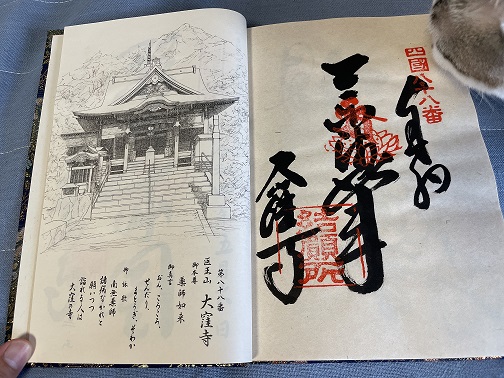 四國八十八番
奉納
大窪寺
結願所
第八十八番
医王山 大窪寺
御本尊 薬師如来
御真言
おん、ころころ、
せんだり、
まとうぎ、そわか
御詠歌
南無薬師
諸病なかれと
願いつつ
詣れる人は
大窪の寺